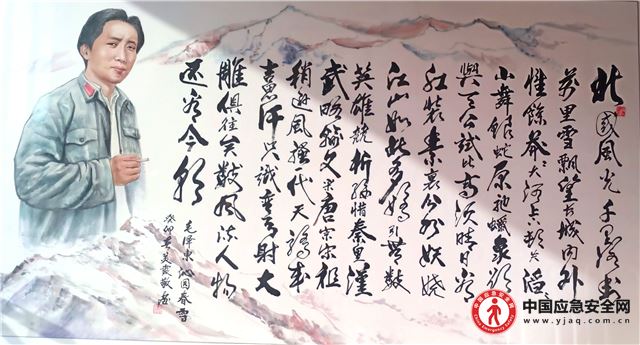 北國風光千里冰封
萬里雪飄望长城内外
惟餘莽莽大河上下顿失滔滔
山舞银蛇原驰蠟象欲
與天公试比高须晴日看
红装素裹分外妖娆
江山如此多娇引無数
英雄競折腰惜秦皇漢
武略输文采唐宗宋祖
稍逊風骚一代天骄成
吉思汗只识弯弓射大
雕俱往矣数風流人物
还看今朝
毛泽东沁园春雪
癸卯
中国应急安全网
www.yjaq.com.cn